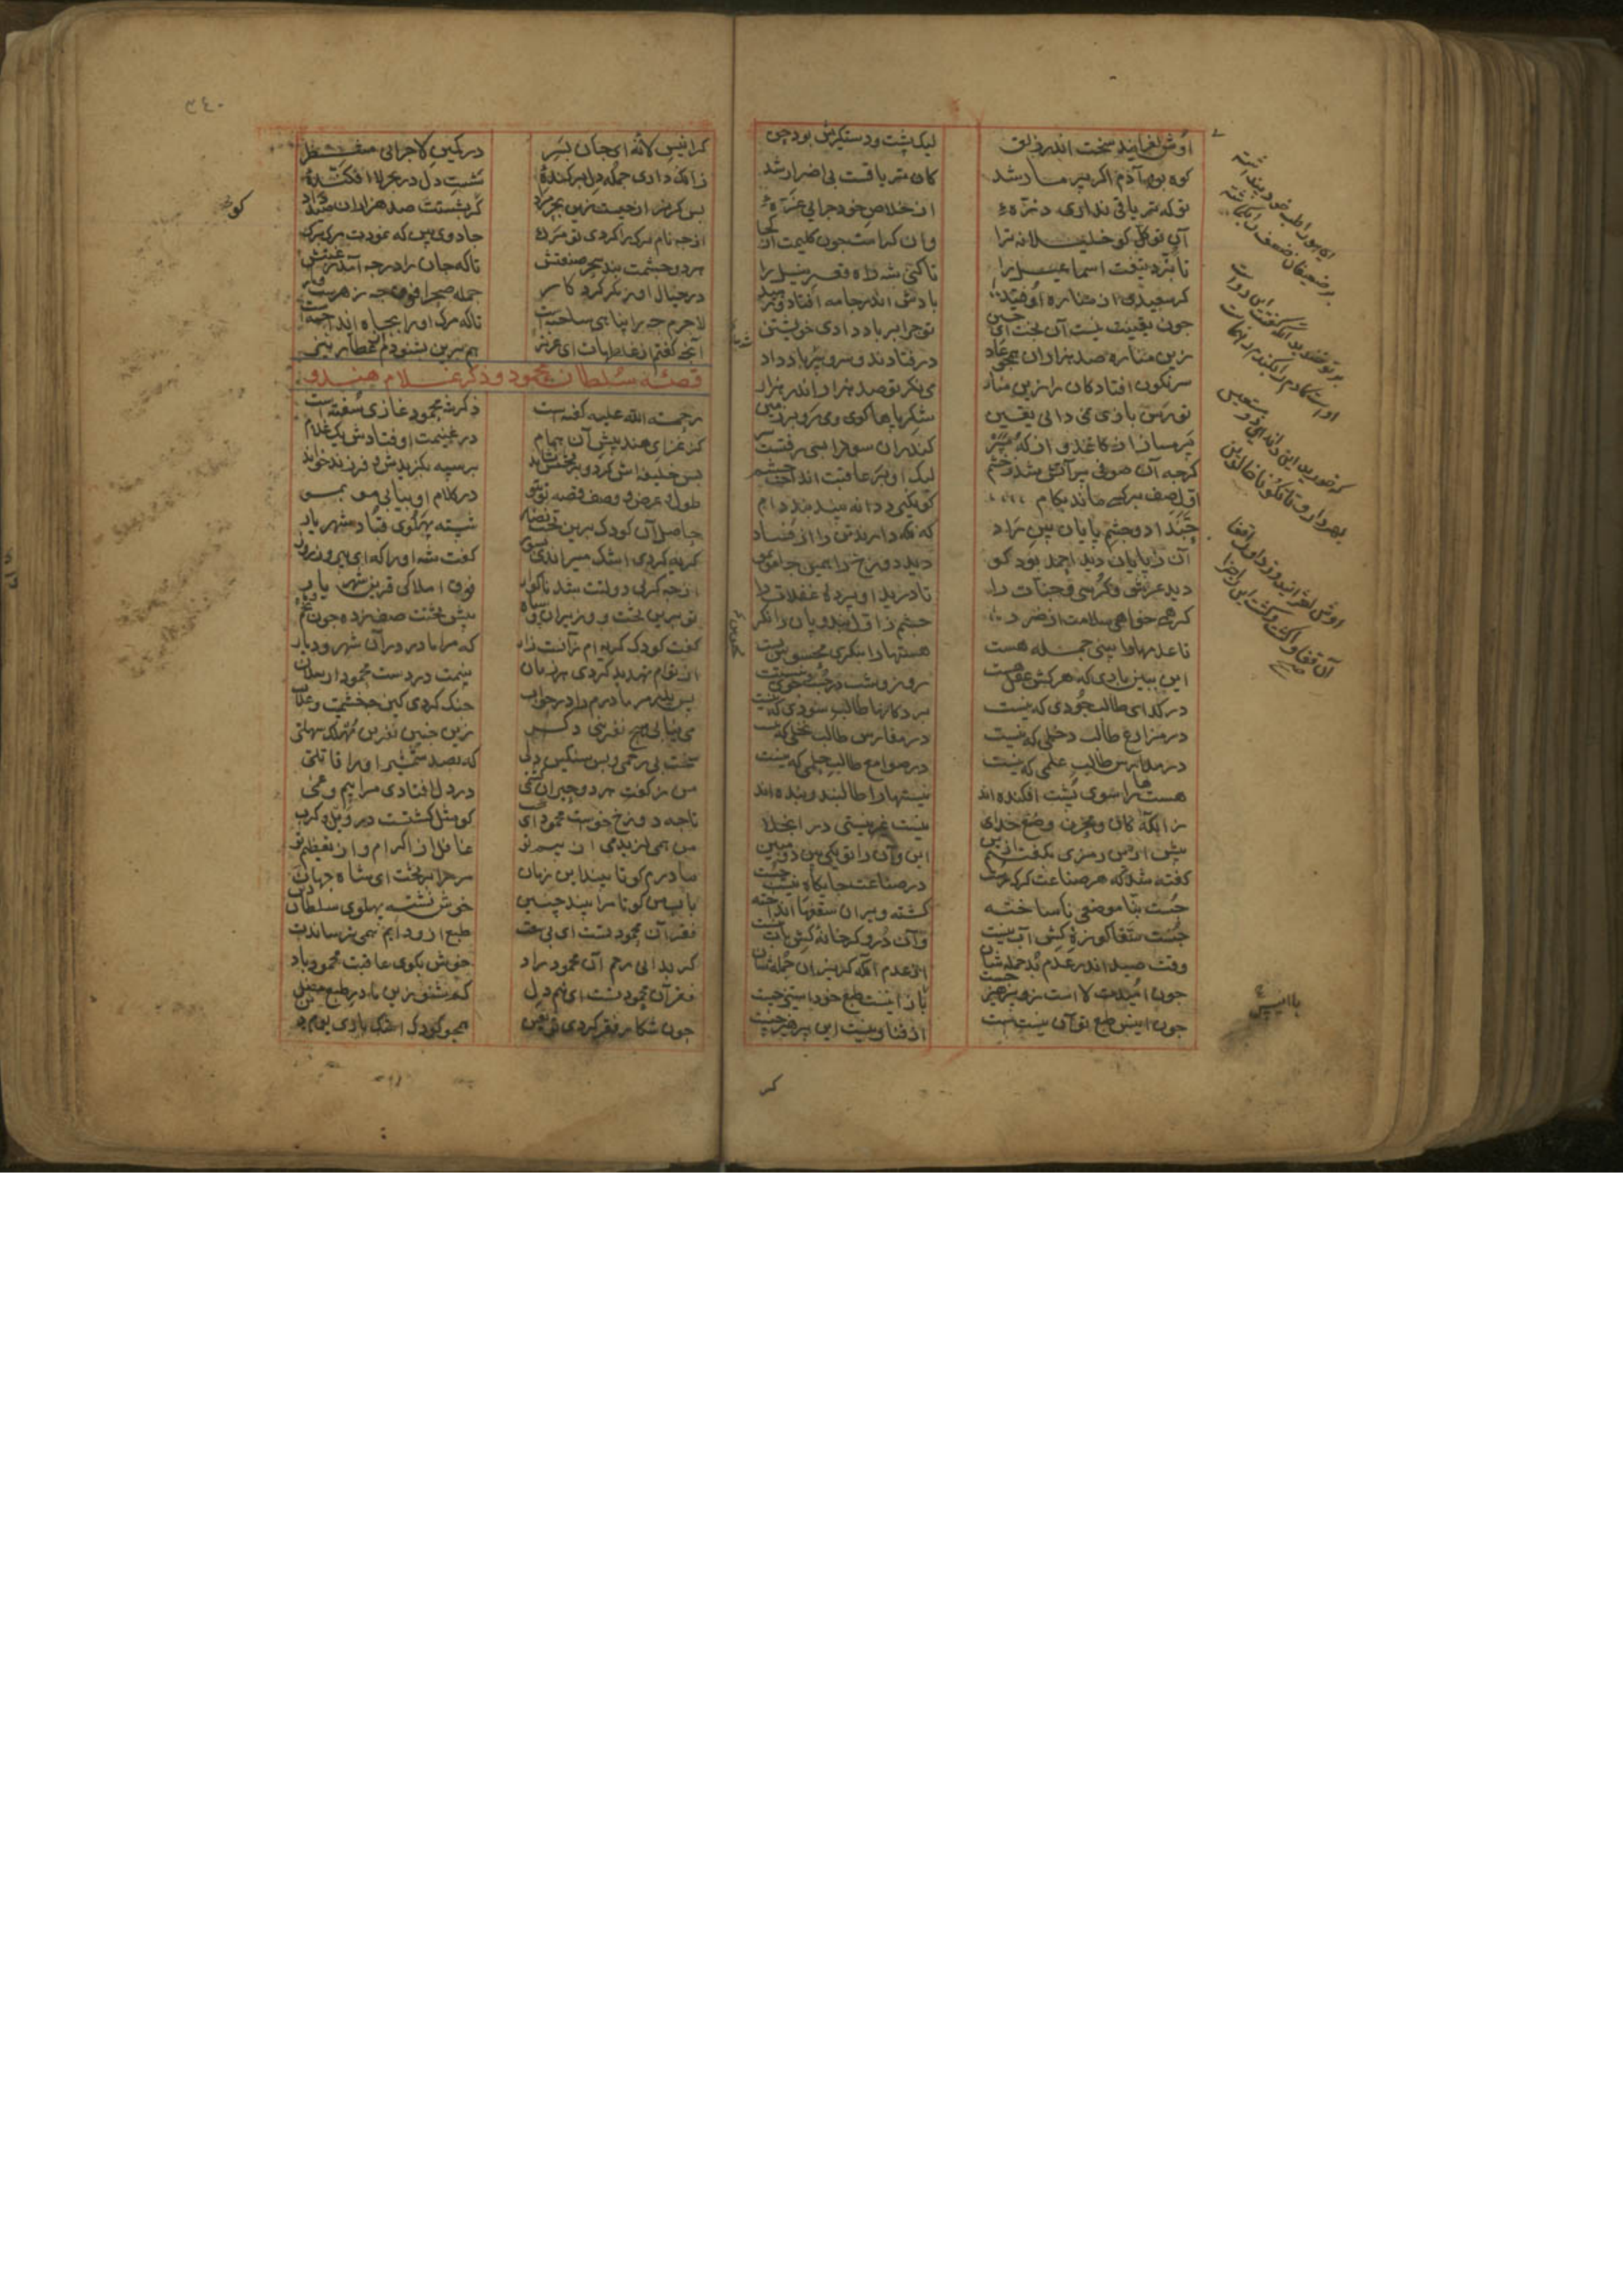 اوش لغزانید سخت اندر زلق لیک پشت و دستگیرش بود حق
کوه بود آدم اگر پر مار شد کان تریاقست بی اضرار شد
تو که تریاقی نداری ذرهٔ از خلاص خود چرایی غرهٔ
آن توکل کو خلیلانه ترا وان کرامت چون کلیمت از کجا
تا نبرد تیغت اسماعیل را تا کنی شه راه قعر نیل را
گر سعیدی از مناره اوفتید بادش اندر جامه افتاد و رهید
چون یقینت نیست آن بخت ای حسن تو چرا بر باد دادی خویشتن
زین مناره صد هزاران همچو عاد در فتادند و سر و سر باد داد
سرنگون افتادگان را زین منار می نگر تو صد هزار اندر هزار
تو رسن بازی نمی دانی یقین شکر پاها گوی و می رو بر زمین
پر مساز از کاغذ و از که مپر که در آن سودا بسی رفتست سر
گرچه آن صوفی پر آتش شد ز خشم لیک او بر عاقبت انداخت چشم
اول صف بر کسی ماند بکام کو نگیرد دانه بیند بند دام
حبذا دو چشم پایان بین راد که نگه دارند تن را از فساد
آن ز پایان دید احمد بود کو دید دوزخ را همین جا مو بمو
دید عرش و کرسی و جنات را تا درید او پرده غفلات را
گر همی خواهی سلامت از ضرر چشم ز اول بند و پایان را نگر
تا عدمها را ببینی جمله هست هستها را بنگری محسوس پست
این ببین باری که هر کش عقل هست روز و شب در جست و جوی نیستست
در گدایی طالب جودی که نیست بر دکانها طالب سودی که نیست
در مزارع طالب دخلی که نیست در مغارس طالب نخلی که نیست
در مدارس طالب علمی که نیست در صوامع طالب حلمی که نیست
هستها را سوی پشت افکنده اند نیستها را طالبند و بنده اند
زانکه کان و مخزن وضع خدای نیست غیر نیستی در انجلا
پیش ازین رمزی بگفتستیم ازین این و آن را تو یکی بین دو مبین
گفته شد که هر صناعت گر که رست در صناعت جایگاه نیست جست
جست بنا موضعی ناساخته گشته ویران سقفها انداخته
جست سقا کوزهٔ کش آب نیست وآن دروگر خانهٔ کش باب نیست
وقت صید اندر عدم بد حمله شان از عدم آنگه گریزان جمله شان
چون امیدت لاست زو پرهیز چیست با انیس طبع خود استیز چیست
چون انیس طبع تو آن نیستیست از فنا و نیست این پرهیز چیست
گر انیس لا نهٔ ای جان بسر در کمین لا چرایی منتظر
زانک داری جمله دل برکندهٔ شست دل در بحر لا افکندهٔ
پس گریز از چیست زین بحر مراد که بشستت صد هزاران صید داد
از چه نام برگ را کردی تو مرگ جادوی بین که نمودت مرگ برگ
هر دو چشمت بست سحر صنعتش تا که جان را در چه آمد رغبتش
در خیال او ز مکر کردگار جمله صحرا فوق چه زهرست و مار
لاجرم چه را پناهی ساختست تا که مرگ او را بچاه انداختست
آنچه گفتم از غلطهات ای عزیز هم برین بشنو دم عطار نیز
قصهٔ سلطان محمود و ذکر غلام هندو
رحمة الله علیه گفته است ذکر شه محمود غازی سفته است
کز غزای هند پیش آن همام در غنیمت اوفتادش یک غلام
پس خلیفه اش کرد و بر تختش نشاند بر سپه بگزیدش و فرزند خواند
طول و عرض و وصف قصه تو بتو در کلام آن بیابی مو بمو
حاصل آن کودک برین تخت نضار شسته پهلوی قباد شهریار
گریه کردی اشک می راندی بسوز گفت شه او را که ای پیروز روز
از چه گریی دولتت شد ناگوار فوق املاکی قرین شهریار
تو برین تخت و وزیران و سپاه پیش تختت صف زده چون نجم و ماه
گفت کودک گریه ام زآنست زار که مرا مادر در آن شهر و دیار
از توام تهدید کردی هر زمان بینمت در دست محمود ارسلان
پس پدر مر مادرم را در جواب جنگ کردی کین چه خشمست و عذاب
می نیابی هیچ نفرینی دگر زین چنین نفرین مهلک سهلتر
سخت بی رحمی و بس سنگین دلی که بصد شمشیر او را قاتلی
من ز گفت هر دو حیران گشتمی در دل افتادی مرا بیم و غمی
تا چه دوزخ خوست محمود ای عجب کو مثل گشتست در ویل و کرب
من همی لرزیدمی از بیم تو غافل از اکرام و از تعظیم تو
مادرم کو تا ببیند این زمان مر مرا بر تخت ای شاه جهان
یا پدر کو تا مرا بیند چنین خوش نشسته پهلوی سلطان دین
فقر آن محمود تست ای بی سعت طبع ازو دایم همی ترساندت
گر بدانی رحم آن محمود راد خوش بگوی عاقبت محمود باد
فقر آن محمود تست ای بیم دل کم شنو زین مادر طبع مضل
چون شکار فقر گردی تو یقین همچو کودک اشک باری یوم دین